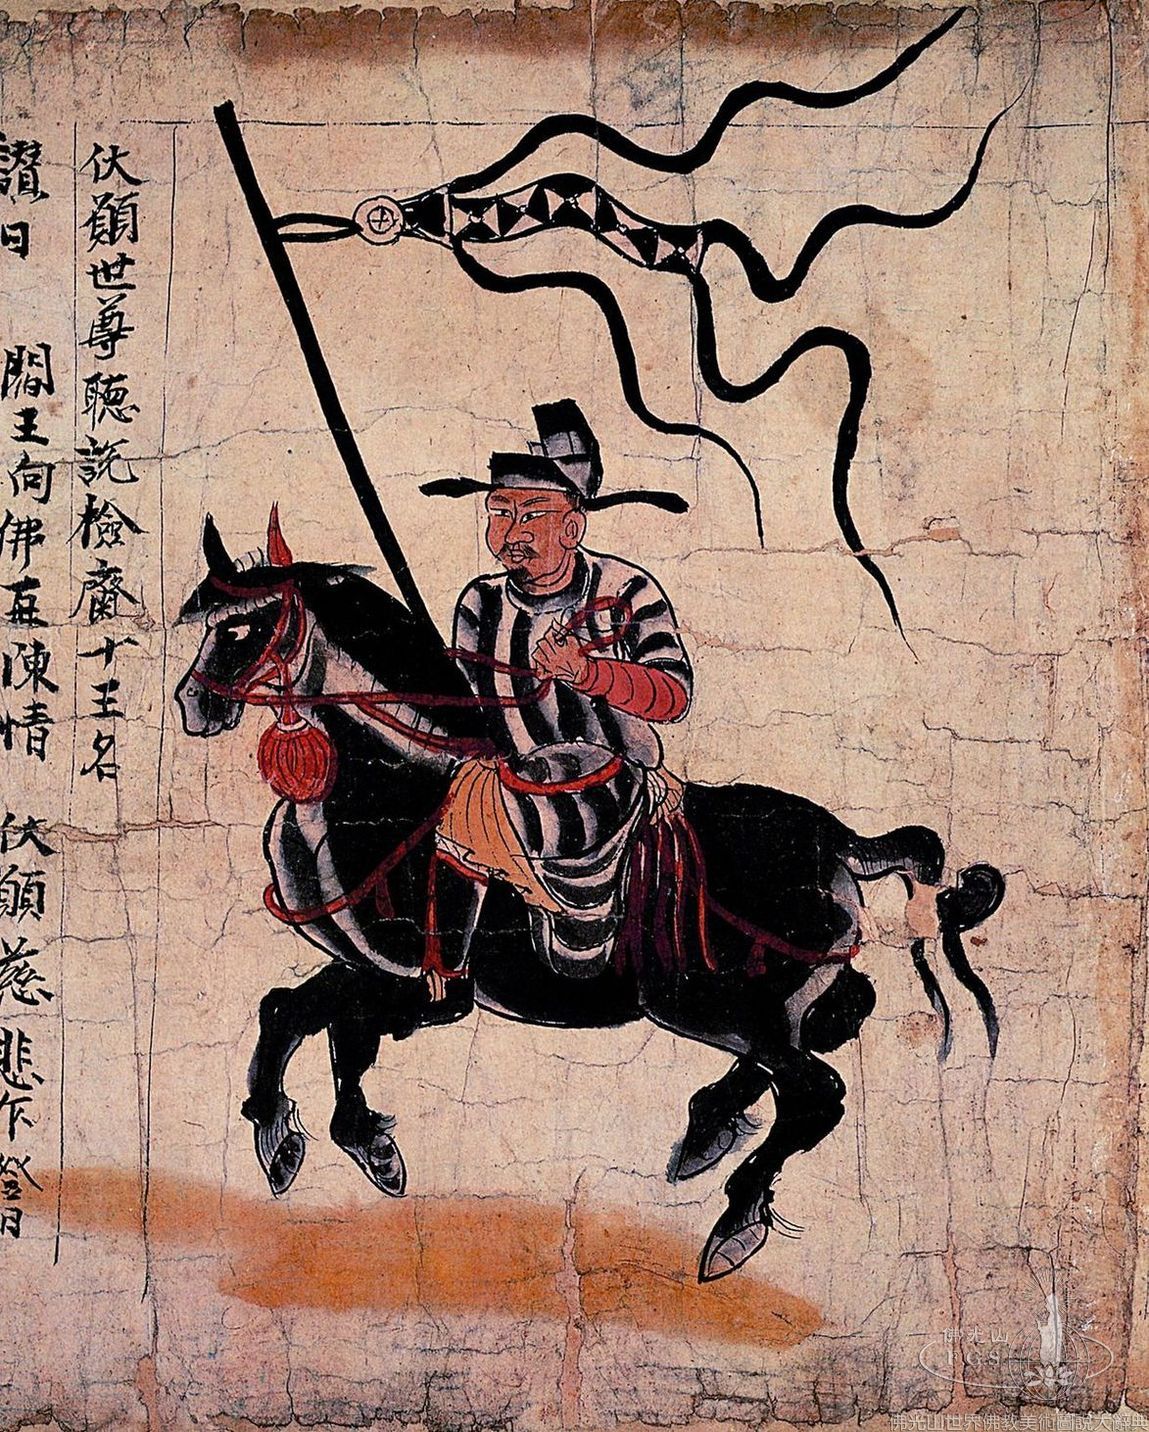 伏願世尊聽說檢齋十王名
讃曰 閻王向佛再陳情 伏願慈悲作證明
佛光山
FGS
佛光山世界佛教美術圖說大辭典